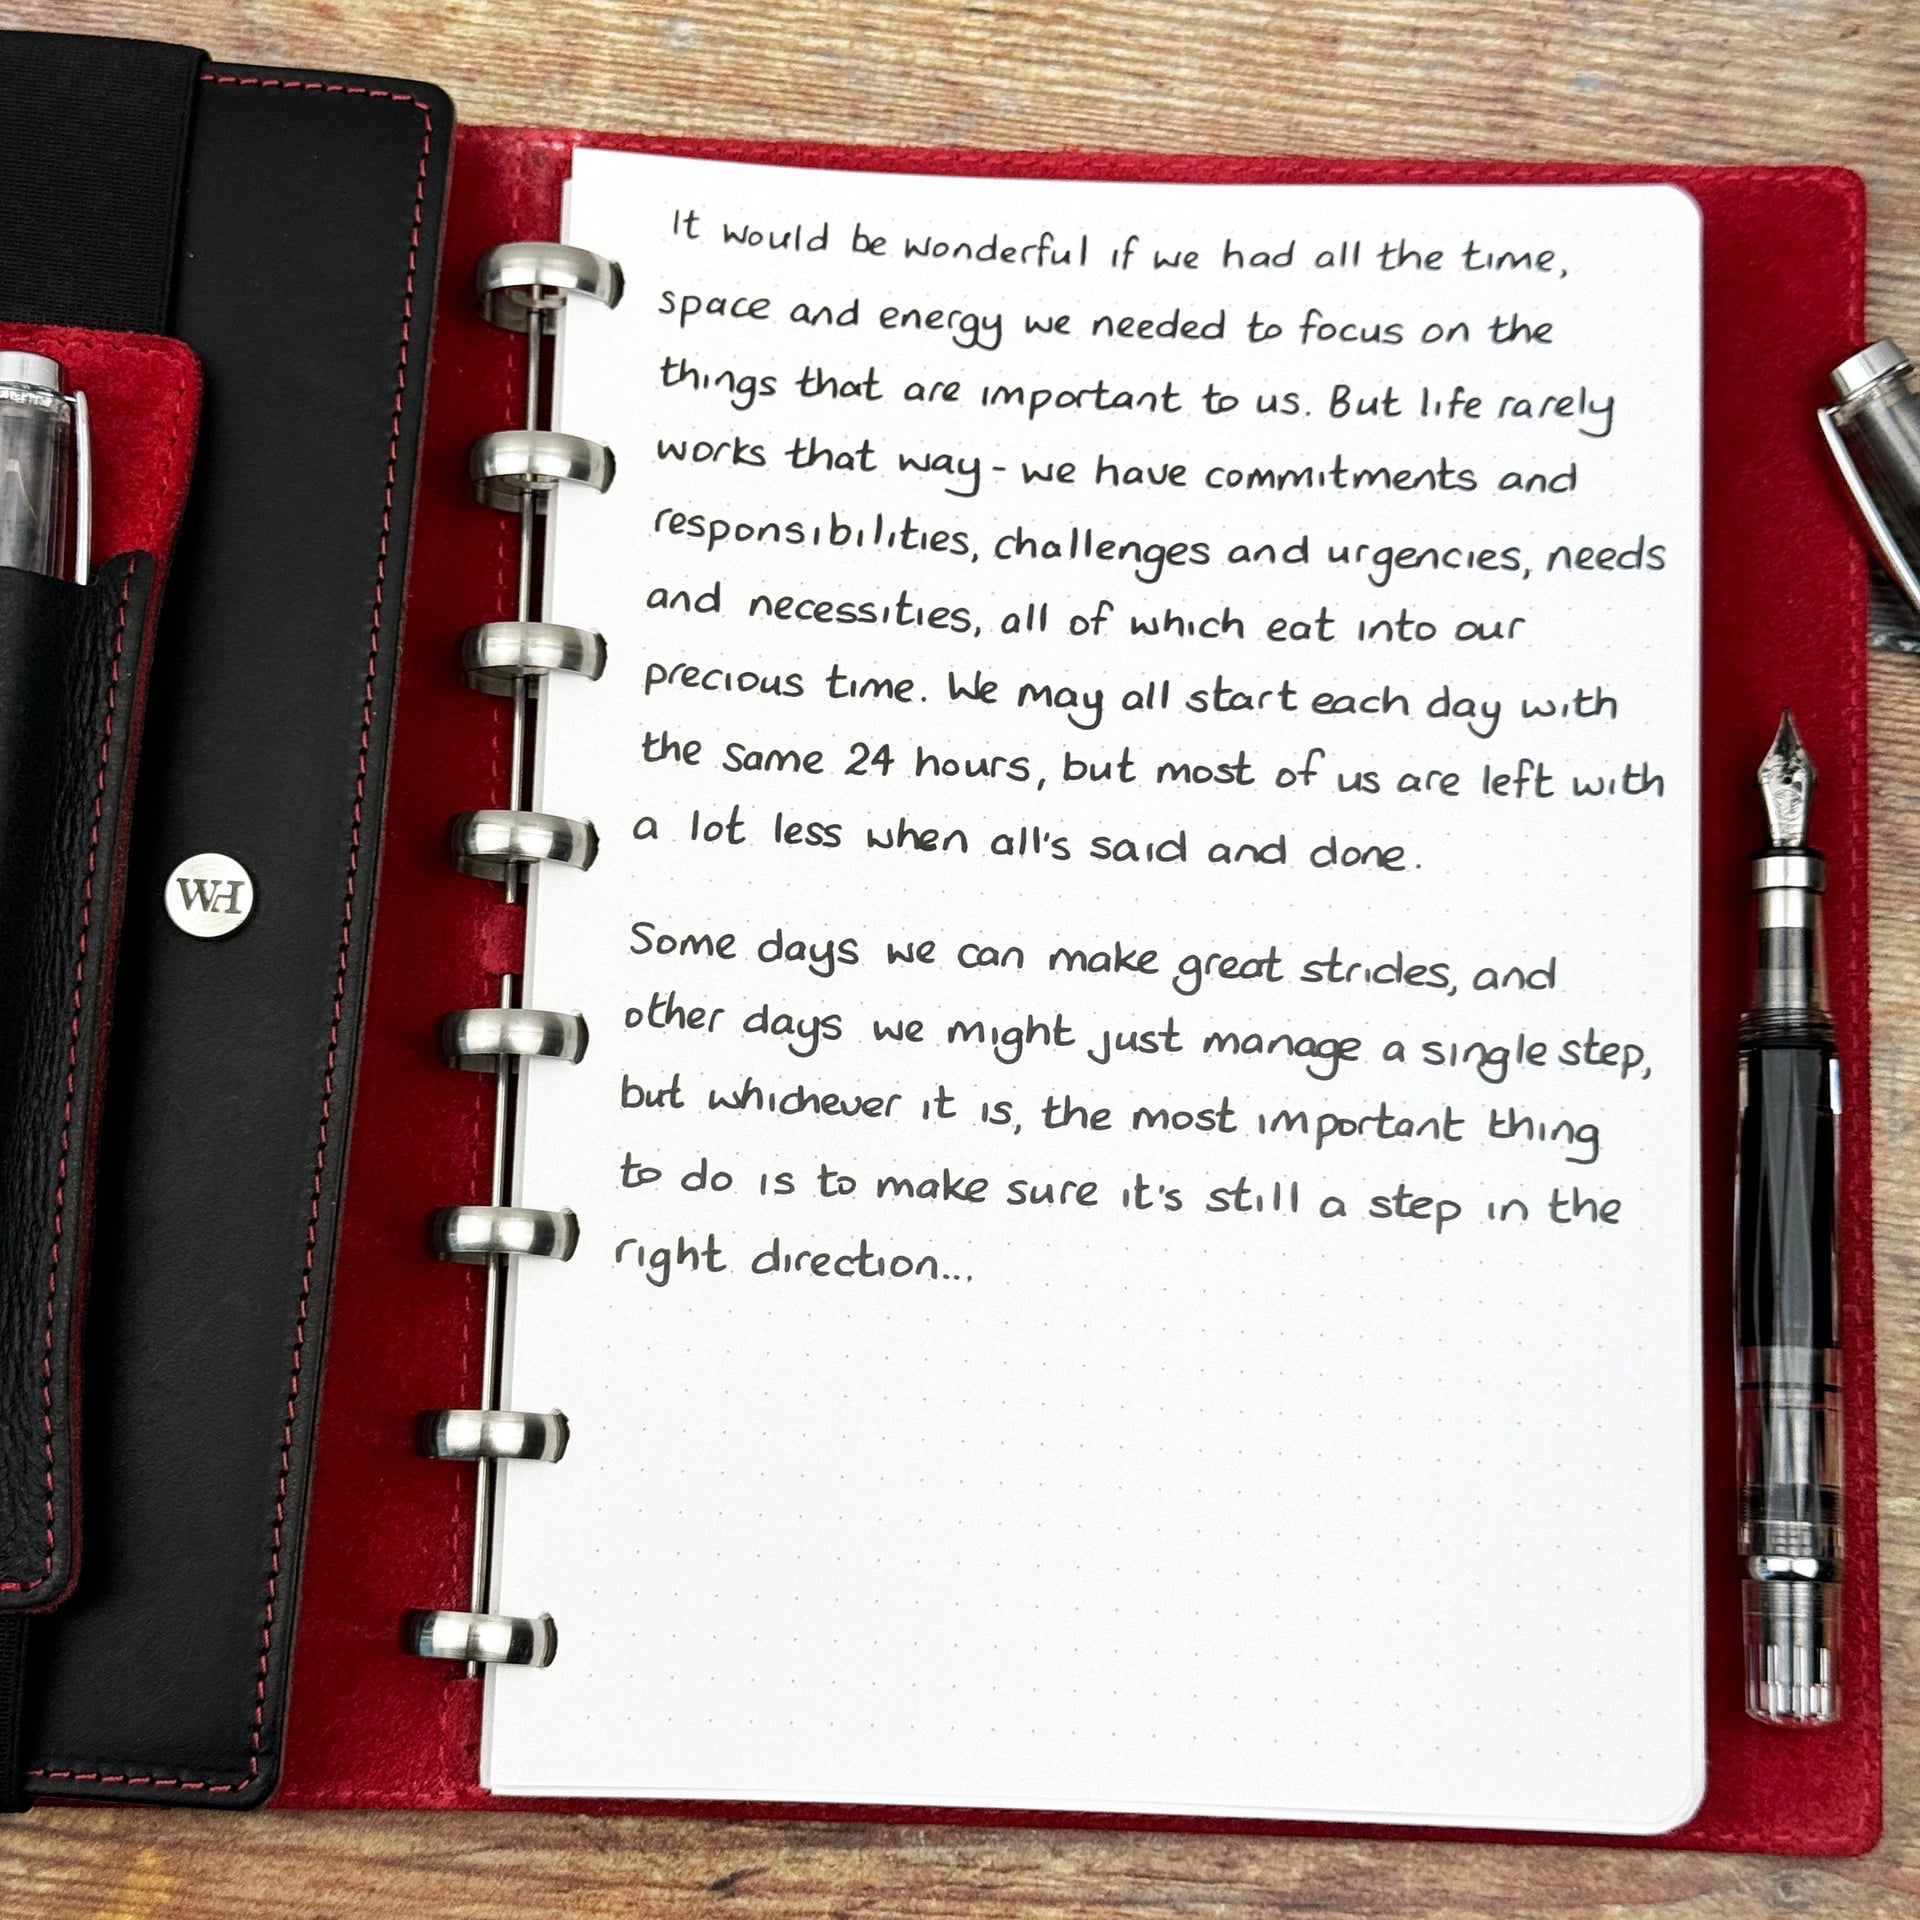 It would be wonderful if we had all the time,
space and energy we needed to focus on the
things that are important to us. But life rarely
works that way - we have commitments and
responsibilities, challenges and urgencies, needs
and necessities, all of which eat into our
precious time. We may all start each day with
the same 24 hours, but most of us are left with
a lot less when all's said and done.
Some days we can make great strides, and
other days we might just manage a single step,
but whichever it is, the most important thing
to do is to make sure it's still a step in the
right direction...
WH